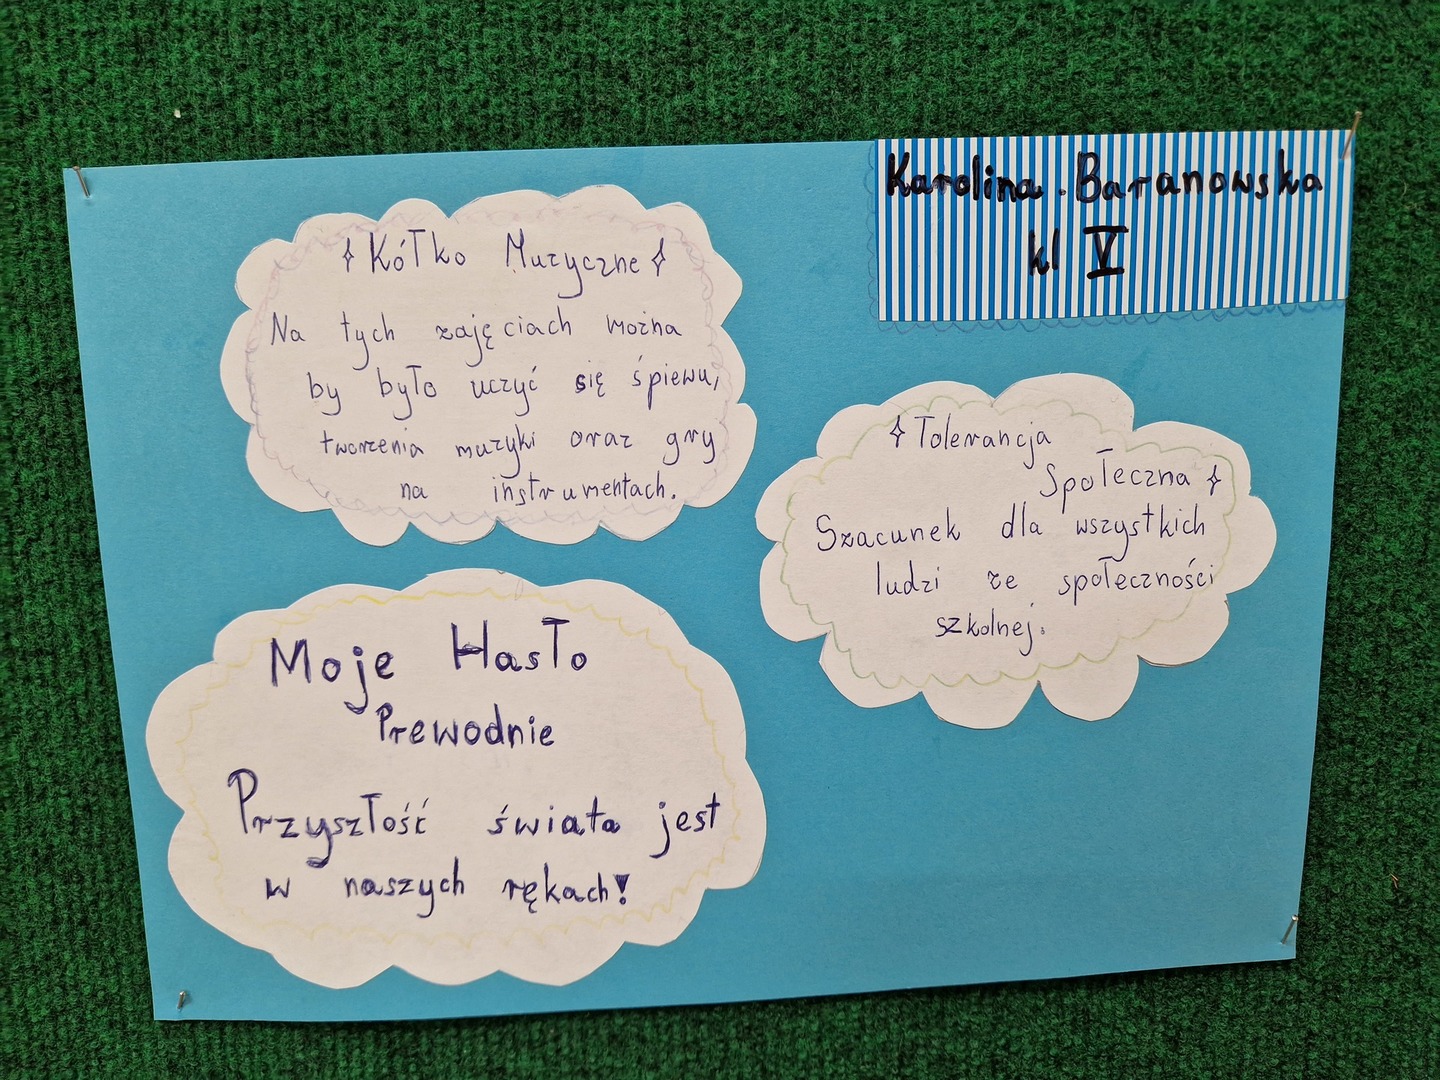 Karolina Baranowska
kl V
Kółko Muzyczne
Na tych zajęciach można
by było uczyć się śpiewu,
tworzenia muzyki oraz gry
na instrumentach.
Tolerancja
Społeczna
Szacunek dla wszystkich
ludzi ze społeczności
szkolnej.
Moje Hasło
Prewodnie
Przyszłość świata jest
w naszych rękach!